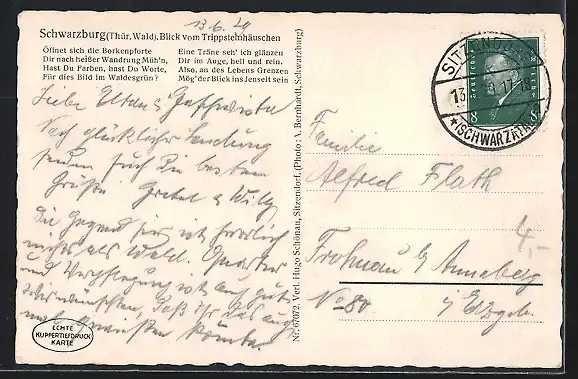 13.6.29
Schwarzburg (Thür. Wald). Blick vom Trippsteinhäuschen
Öffnet sich die Borkenpforte
Dir nach heißer Wandrung Müh'n,
Hast Du Farben, hast Du Worte,
Für dies Bild im Waldesgrün?
Eine Träne seh' ich glänzen
Dir im Auge, hell und rein.
Also, an des Lebens Grenzen
Mög' der Blick ins Jenseit sein
Liebe Eltern &
Nach glücklicher Landung
senden Euch die besten
Grüße Gretel & Willy
Die Gegend hier ist herrlich
nichts als Wald. Quartier
und Verpflegung ist auch gut.
Wir wünschten, daß Ihr das auch
mal genießen könntet.
ECHTE
KUPFERTIEFDRUCK
KARTE
Nr. 67072. Verl. Hugo Schönau, Sitzendorf. (Photo: A. Bernhardt, Schwarzburg)
SITZENDORF
13
* (SCHWARZATAL)
8 8
Familie
Alfred Flath
4,-
Frohnau b/ Annaberg
No 80 i/ Erzgeb.